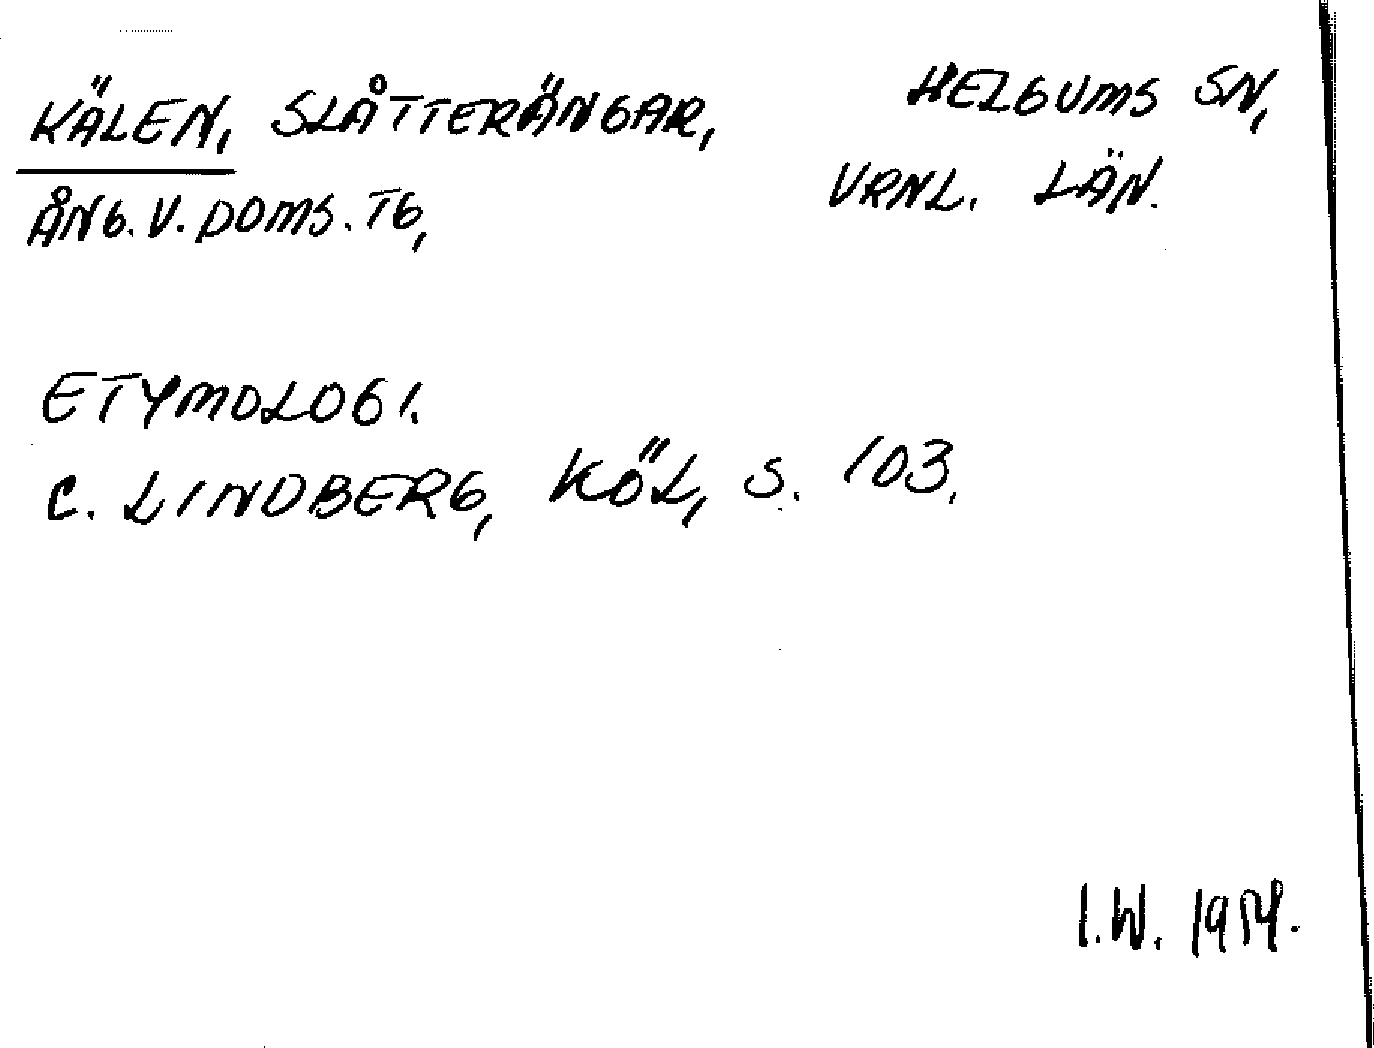 KÄLEN, SLÅTTERÄNGAR,
HELGUMS SN,
ÅNG. V. DOMS. TG,
VRNL. LÄN.
ETYMOLOGI.
C. LINDBERG, KÖL, S. 103.
I.W. 1954.